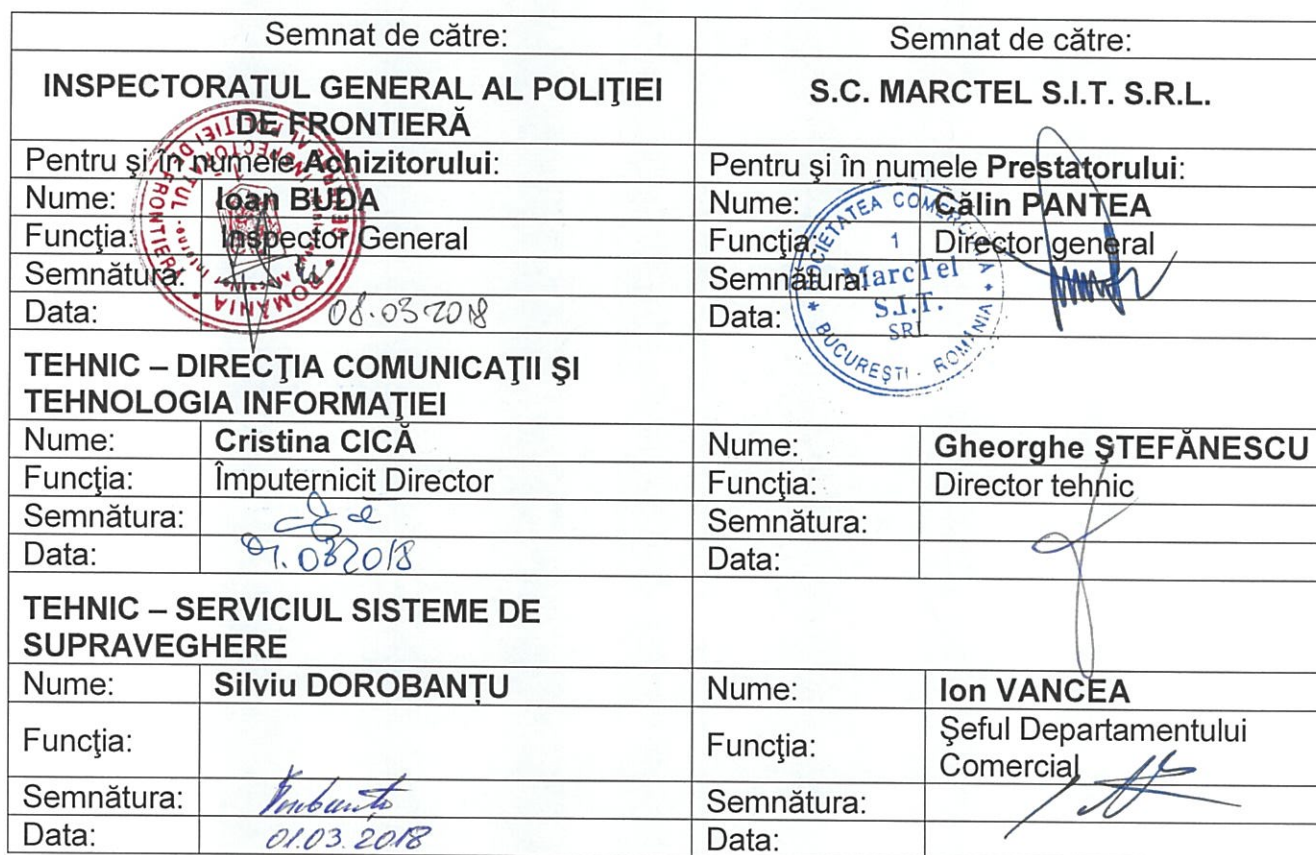 Semnat de către:
INSPECTORATUL GENERAL AL POLIŢIEI
DE FRONTIERĂ
Pentru şi în numele Achizitorului:
Nume: Ioan BUDA
Funcţia: Inspector General
Semnătura:
Data: 08.03.2018
TEHNIC – DIRECŢIA COMUNICAŢII ŞI
TEHNOLOGIA INFORMAŢIEI
Nume: Cristina CICĂ
Funcţia: Împuternicit Director
Semnătura:
Data: 01.03.2018
TEHNIC – SERVICIUL SISTEME DE
SUPRAVEGHERE
Nume: Silviu DOROBANȚU
Funcţia:
Semnătura:
Data: 01.03.2018
Semnat de către:
S.C. MARCTEL S.I.T. S.R.L.
Pentru şi în numele Prestatorului:
Nume: Călin PANTEA
Funcţia: Director general
Semnătura:
Data:
SOCIETATEA COMERCIALĂ
1
MarcTel
S.I.T.
SRL
BUCUREŞTI - ROMÂNIA
Nume: Gheorghe ŞTEFĂNESCU
Funcţia: Director tehnic
Semnătura:
Data:
Nume: Ion VANCEA
Funcţia: Şeful Departamentului
Comercial
Semnătura:
Data:
ROMÂNIA